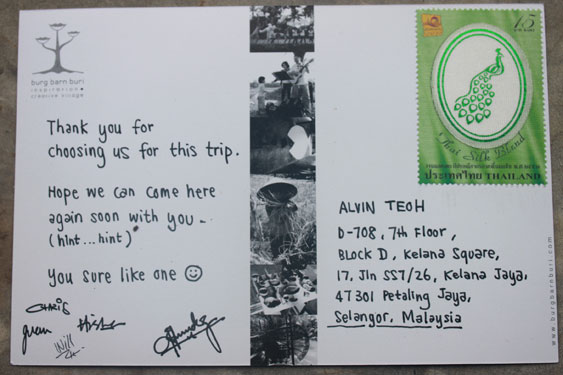 burg barn buri
inspiration •
creative village
Thank you for
choosing us for this trip.
Hope we can come here
again soon with you -
(hint...hint)
You sure like one ☺
CHRIS
Will
15
Thai Silk
ประเทศไทย THAILAND
ALVIN TEOH
D-708, 7th Floor,
BLOCK D, Kelana Square,
17, Jln SS7/26, Kelana Jaya,
47301 Petaling Jaya,
Selangor, Malaysia
www.burgbarnburi.com